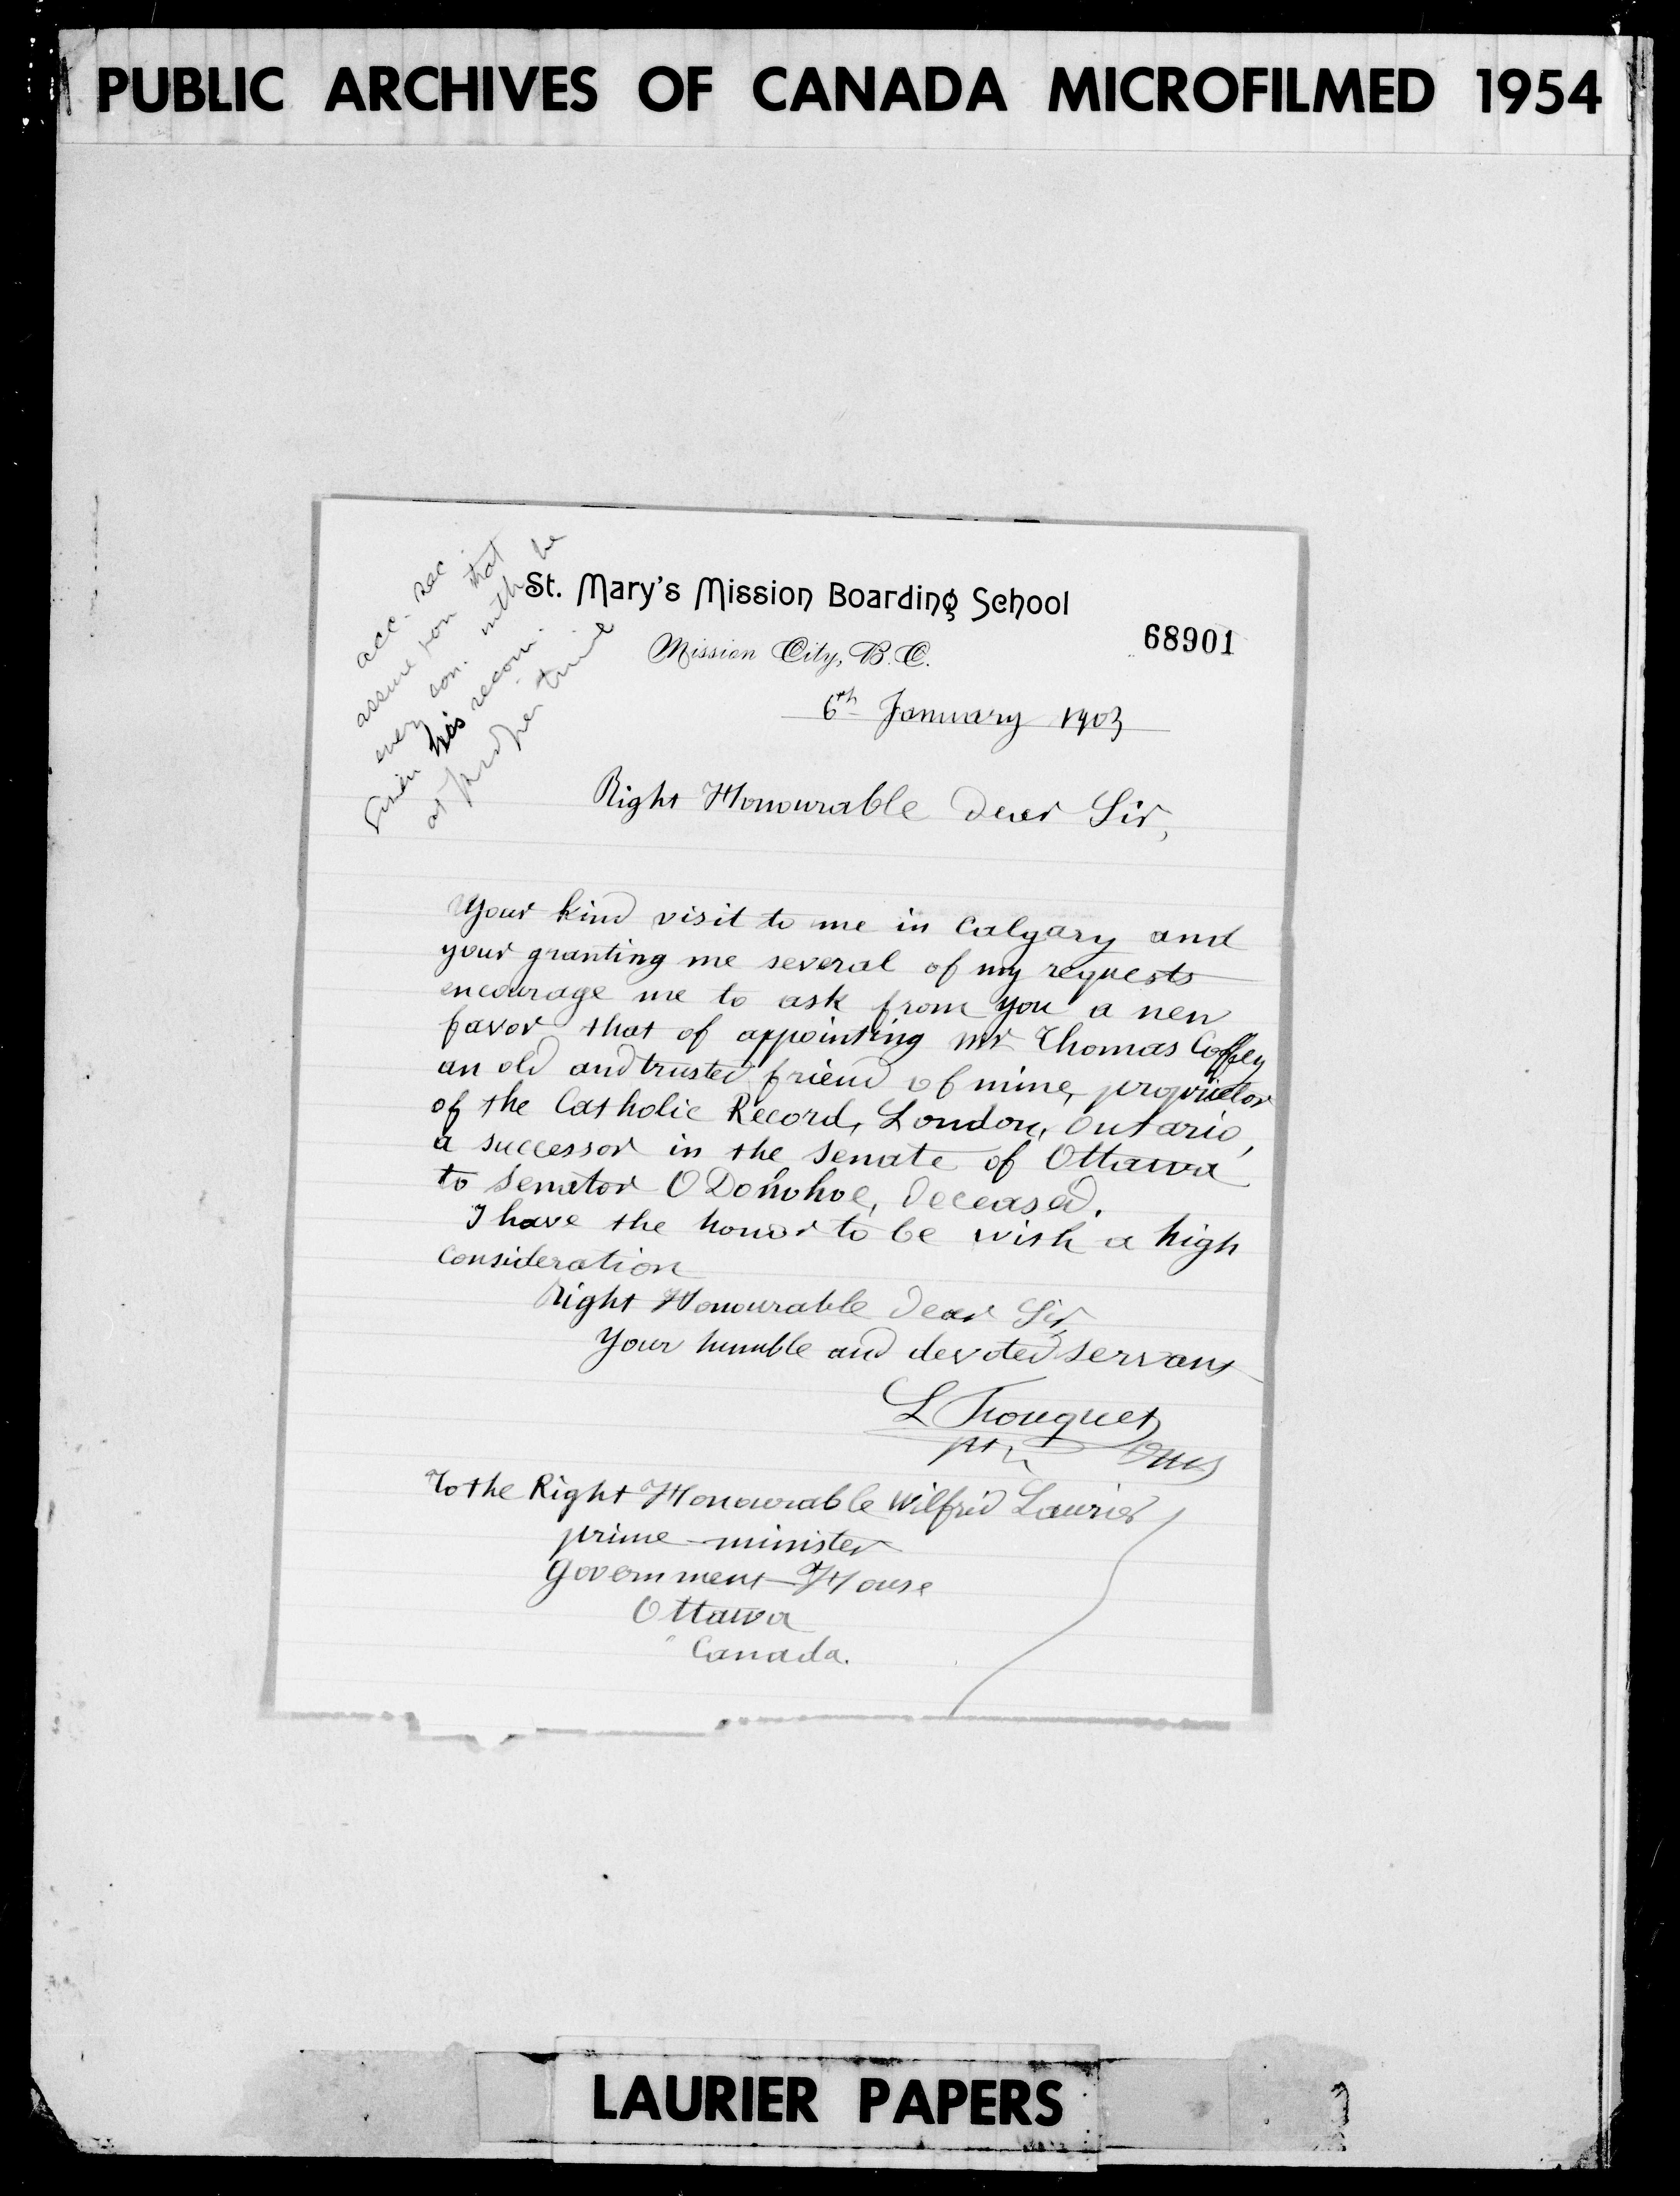 PUBLIC ARCHIVES OF CANADA MICROFILMED 1954
acc. rec
assure you that
every con. with be
given his recom.
at proper time
St. Mary's Mission Boarding School
68901
Mission City, B.C.
6th January 1903
Right Honourable Dear Sir,
Your kind visit to me in Calgary and
your granting me several of my requests
encourage me to ask from you a new
favor that of appointing Mr Thomas Coffey
an old and trusted friend of mine, proprietor
of the Catholic Record, London, Ontario,
a successor in the Senate of Ottawa
to Senator O'Donohoe, deceased.
I have the honor to be with a high
consideration
Right Honourable Dear Sir
Your humble and devoted servant
L Fouquet
ptr OMI
To the Right Honourable Wilfrid Laurier
prime minister
Government House
Ottawa
Canada.
LAURIER PAPERS